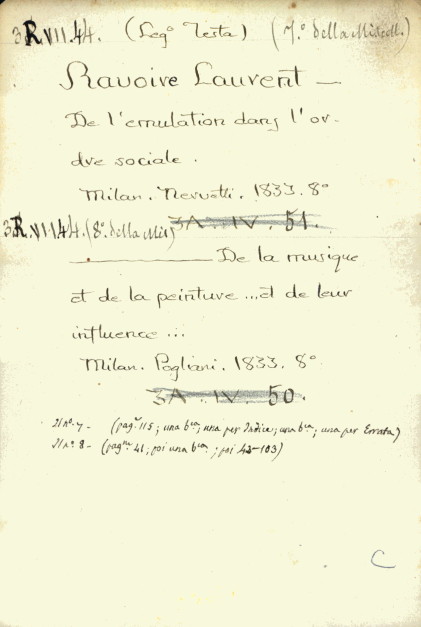 3R.VII.44. (Leg.º Testa) (7.º della Miscell.)
Ravoire Laurent —
De l'emulation dans l'or-
dre sociale.
Milan. Nervetti. 1833. 8º
3A. IV. 51.
3R.VII.44. (8º della Mis)
——— De la musique
et de la peinture ... et de leur
influence ...
Milan. Pogliani. 1833. 8º
3A. IV. 50.
Il nº 7 - (pag. 115; una b.ca; una per Indice; una b.ca; una per Errata)
Il nº 8 - (pagne 41; poi una b.ca; poi 43-103)
C